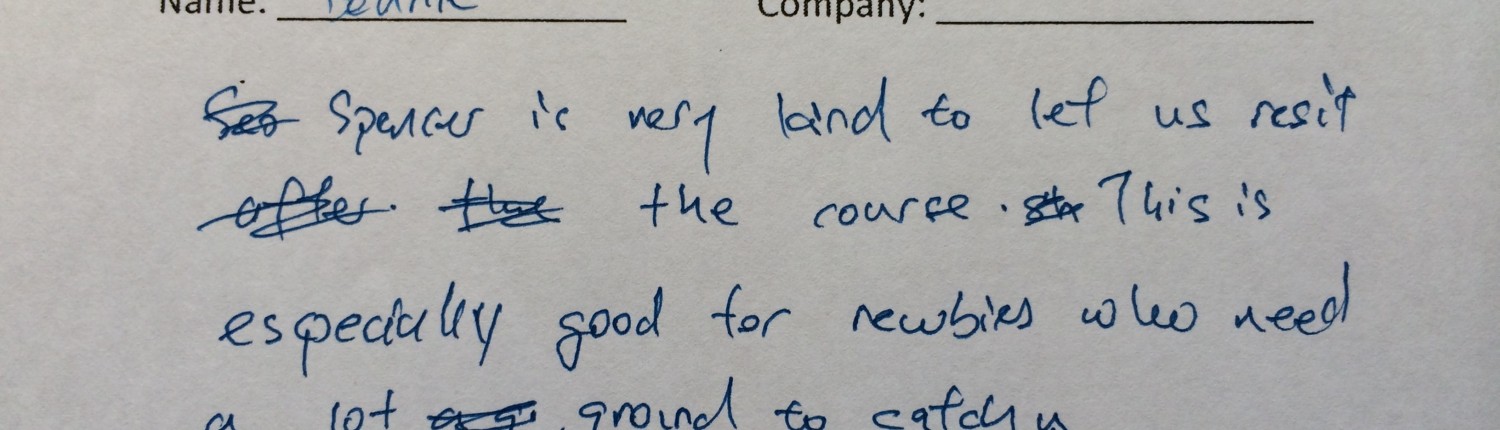 Name: Company:
Spencer is very kind to let us resit
the course. This is
especially good for newbies who need
a lot ground to catch u